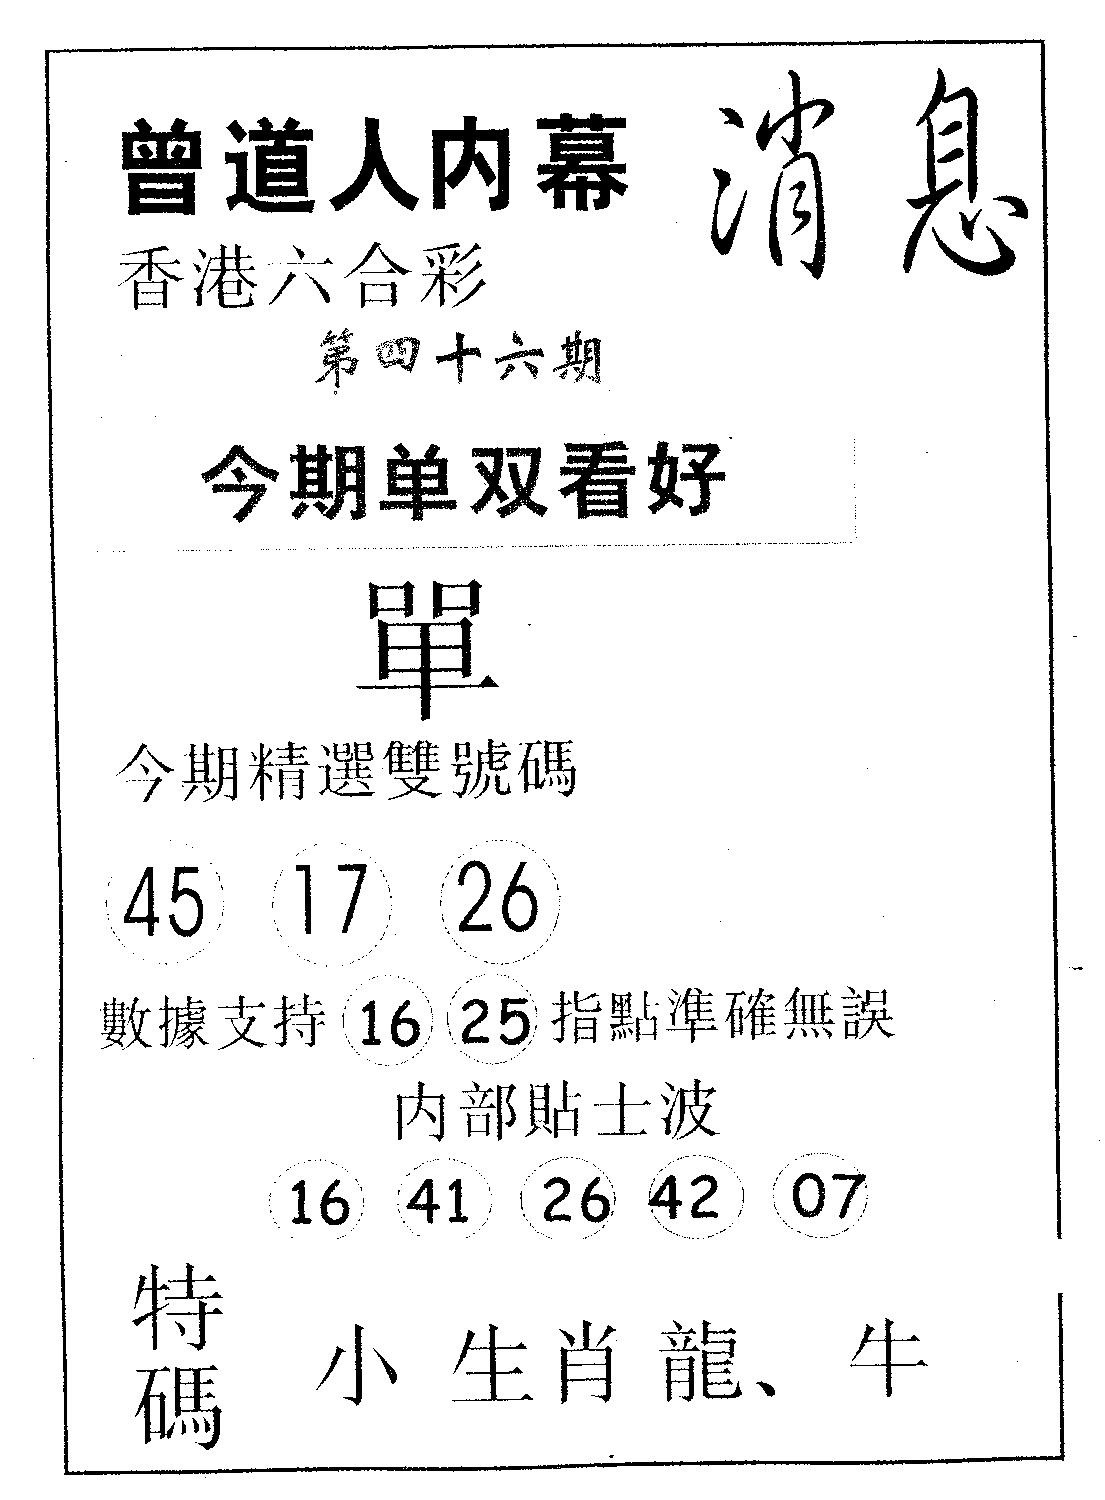 曾道人内幕 消息
香港六合彩
第四十六期
今期单双看好
單
今期精選雙號碼
45 17 26
數據支持 16 25 指點準確無誤
内部貼士波
16 41 26 42 07
特碼 小 生肖 龍、牛